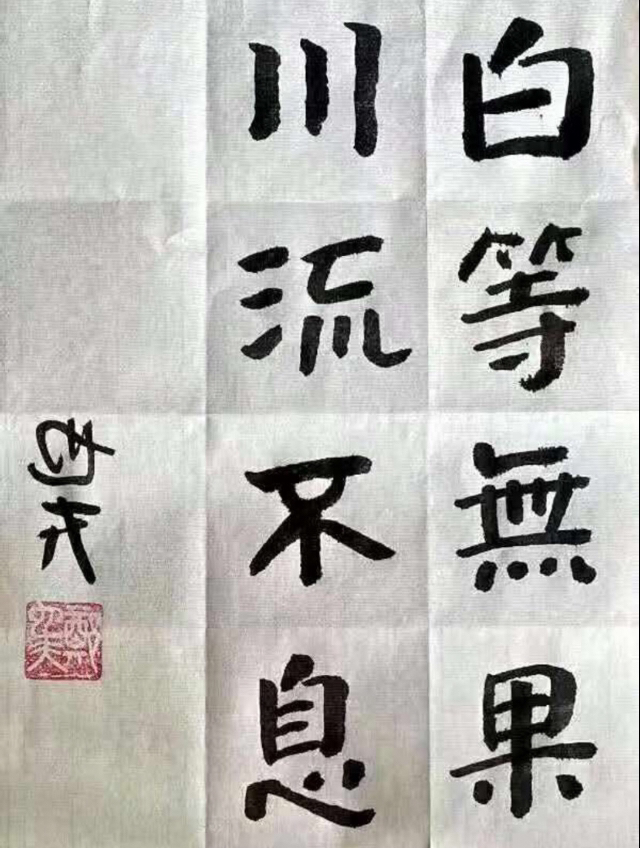 白等無果
川流不息